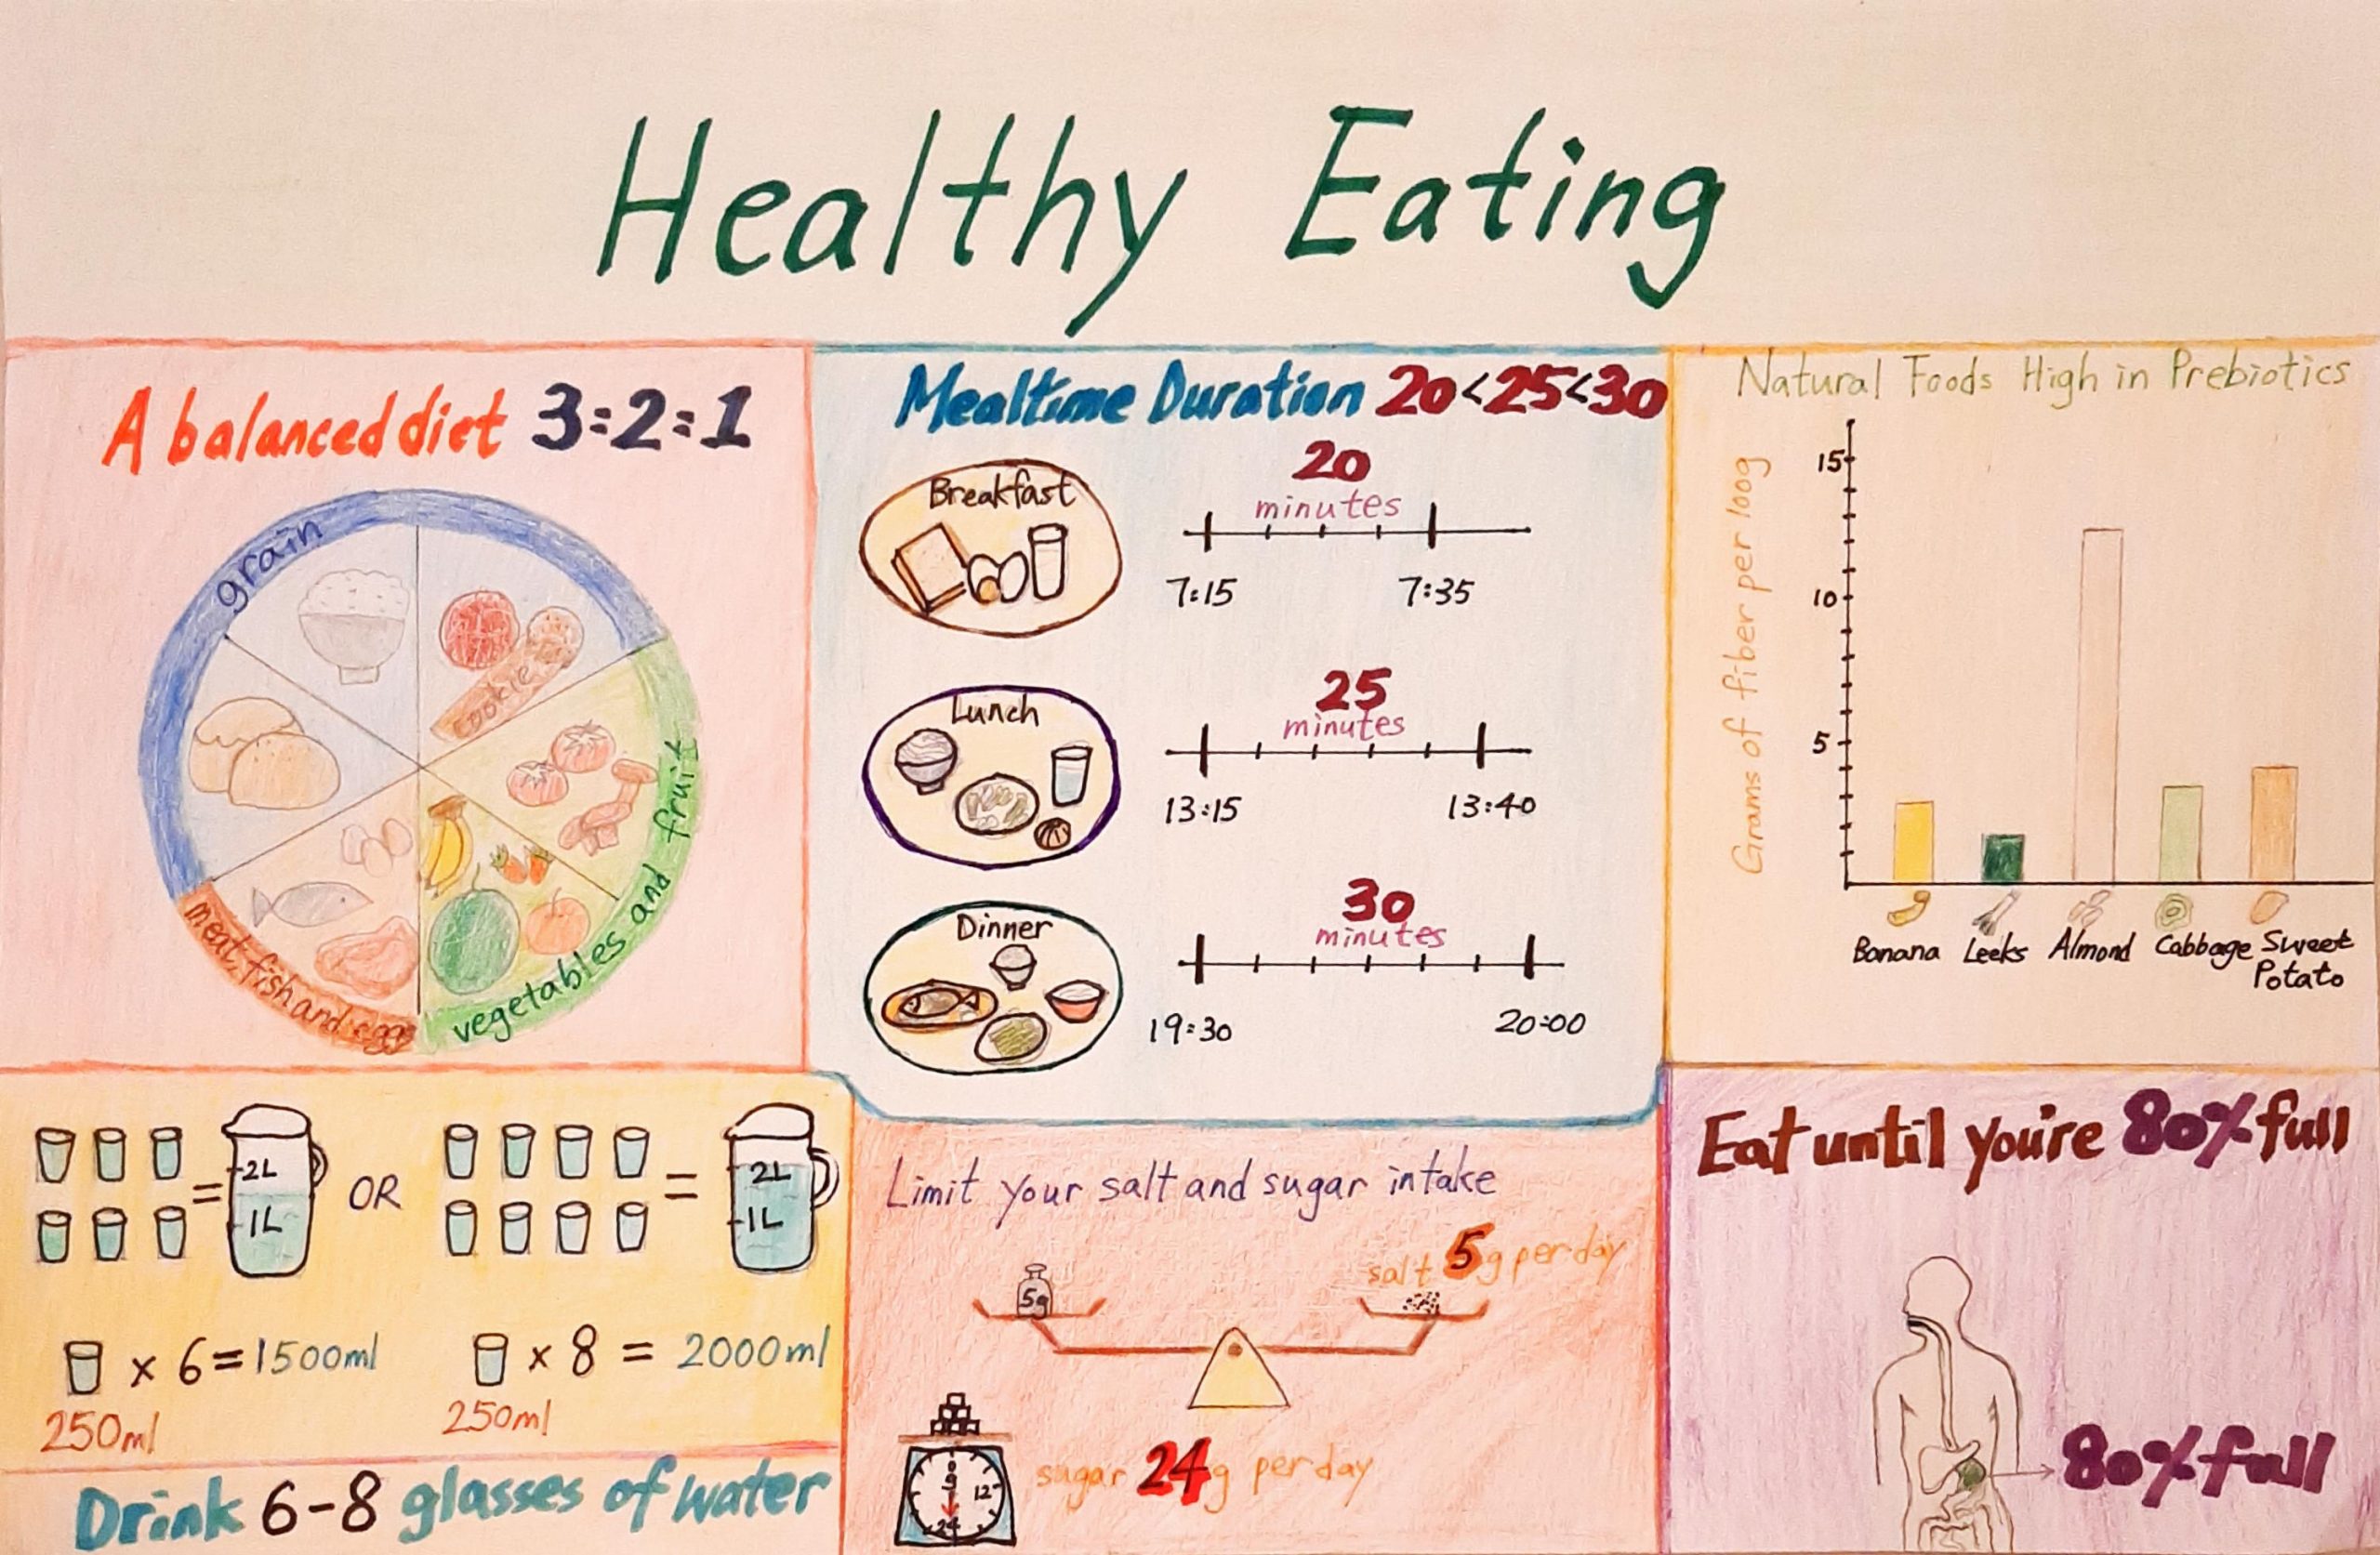 Healthy Eating
A balanced diet 3:2:1
grain
cookie
vegetables and fruit
meat, fish and eggs
Mealtime Duration 20<25<30
Breakfast
20
minutes
7:15 7:35
Lunch
25
minutes
13:15 13:40
Dinner
30
minutes
19:30 20:00
Natural Foods High in Prebiotics
Grams of fiber per 100g
15
10
5
Banana Leeks Almond Cabbage Sweet
Potato
= 2L
1L
OR
= 2L
1L
x 6 = 1500ml
250ml
x 8 = 2000ml
250ml
Drink 6-8 glasses of water
Limit your salt and sugar intake
salt 5g per day
5g
sugar 24g per day
0
g
12
24
Eat until you're 80% full
80% full